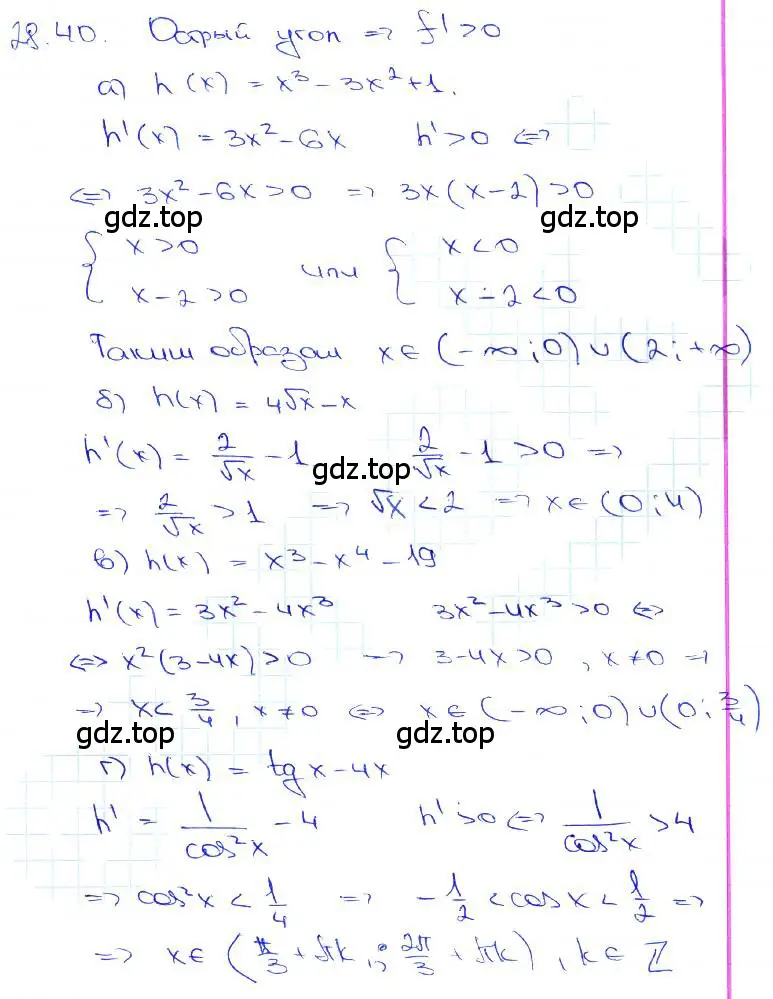 28.40. Острый угол => f' > 0
а) h(x) = x³ - 3x² + 1.
h'(x) = 3x² - 6x     h' > 0 <=>
<=> 3x² - 6x > 0 => 3x(x-2) > 0
gdz.top gdz.top
{ x > 0   или   { x < 0
{ x - 2 > 0     { x - 2 < 0
Таким образом x ∈ (-∞; 0) ∪ (2; +∞)
б) h(x) = 4√x - x
h'(x) = 2/√x - 1     2/√x - 1 > 0 =>
gdz.top
=> 2/√x > 1 => √x < 2 => x ∈ (0; 4)
в) h(x) = x³ - x⁴ - 19
h'(x) = 3x² - 4x³     3x² - 4x³ > 0 <=>
<=> x²(3-4x) > 0 → 3-4x > 0, x ≠ 0 =>
=> x < 3/4, x ≠ 0 <=> x ∈ (-∞; 0) ∪ (0; 3/4)
gdz.top gdz.top
г) h(x) = tg x - 4x
h' = 1/cos²x - 4     h' > 0 <=> 1/cos²x > 4
=> cos²x < 1/4 => -1/2 < cos x < 1/2 =>
=> x ∈ (π/3 + πk; 2π/3 + πk), k ∈ ℤ